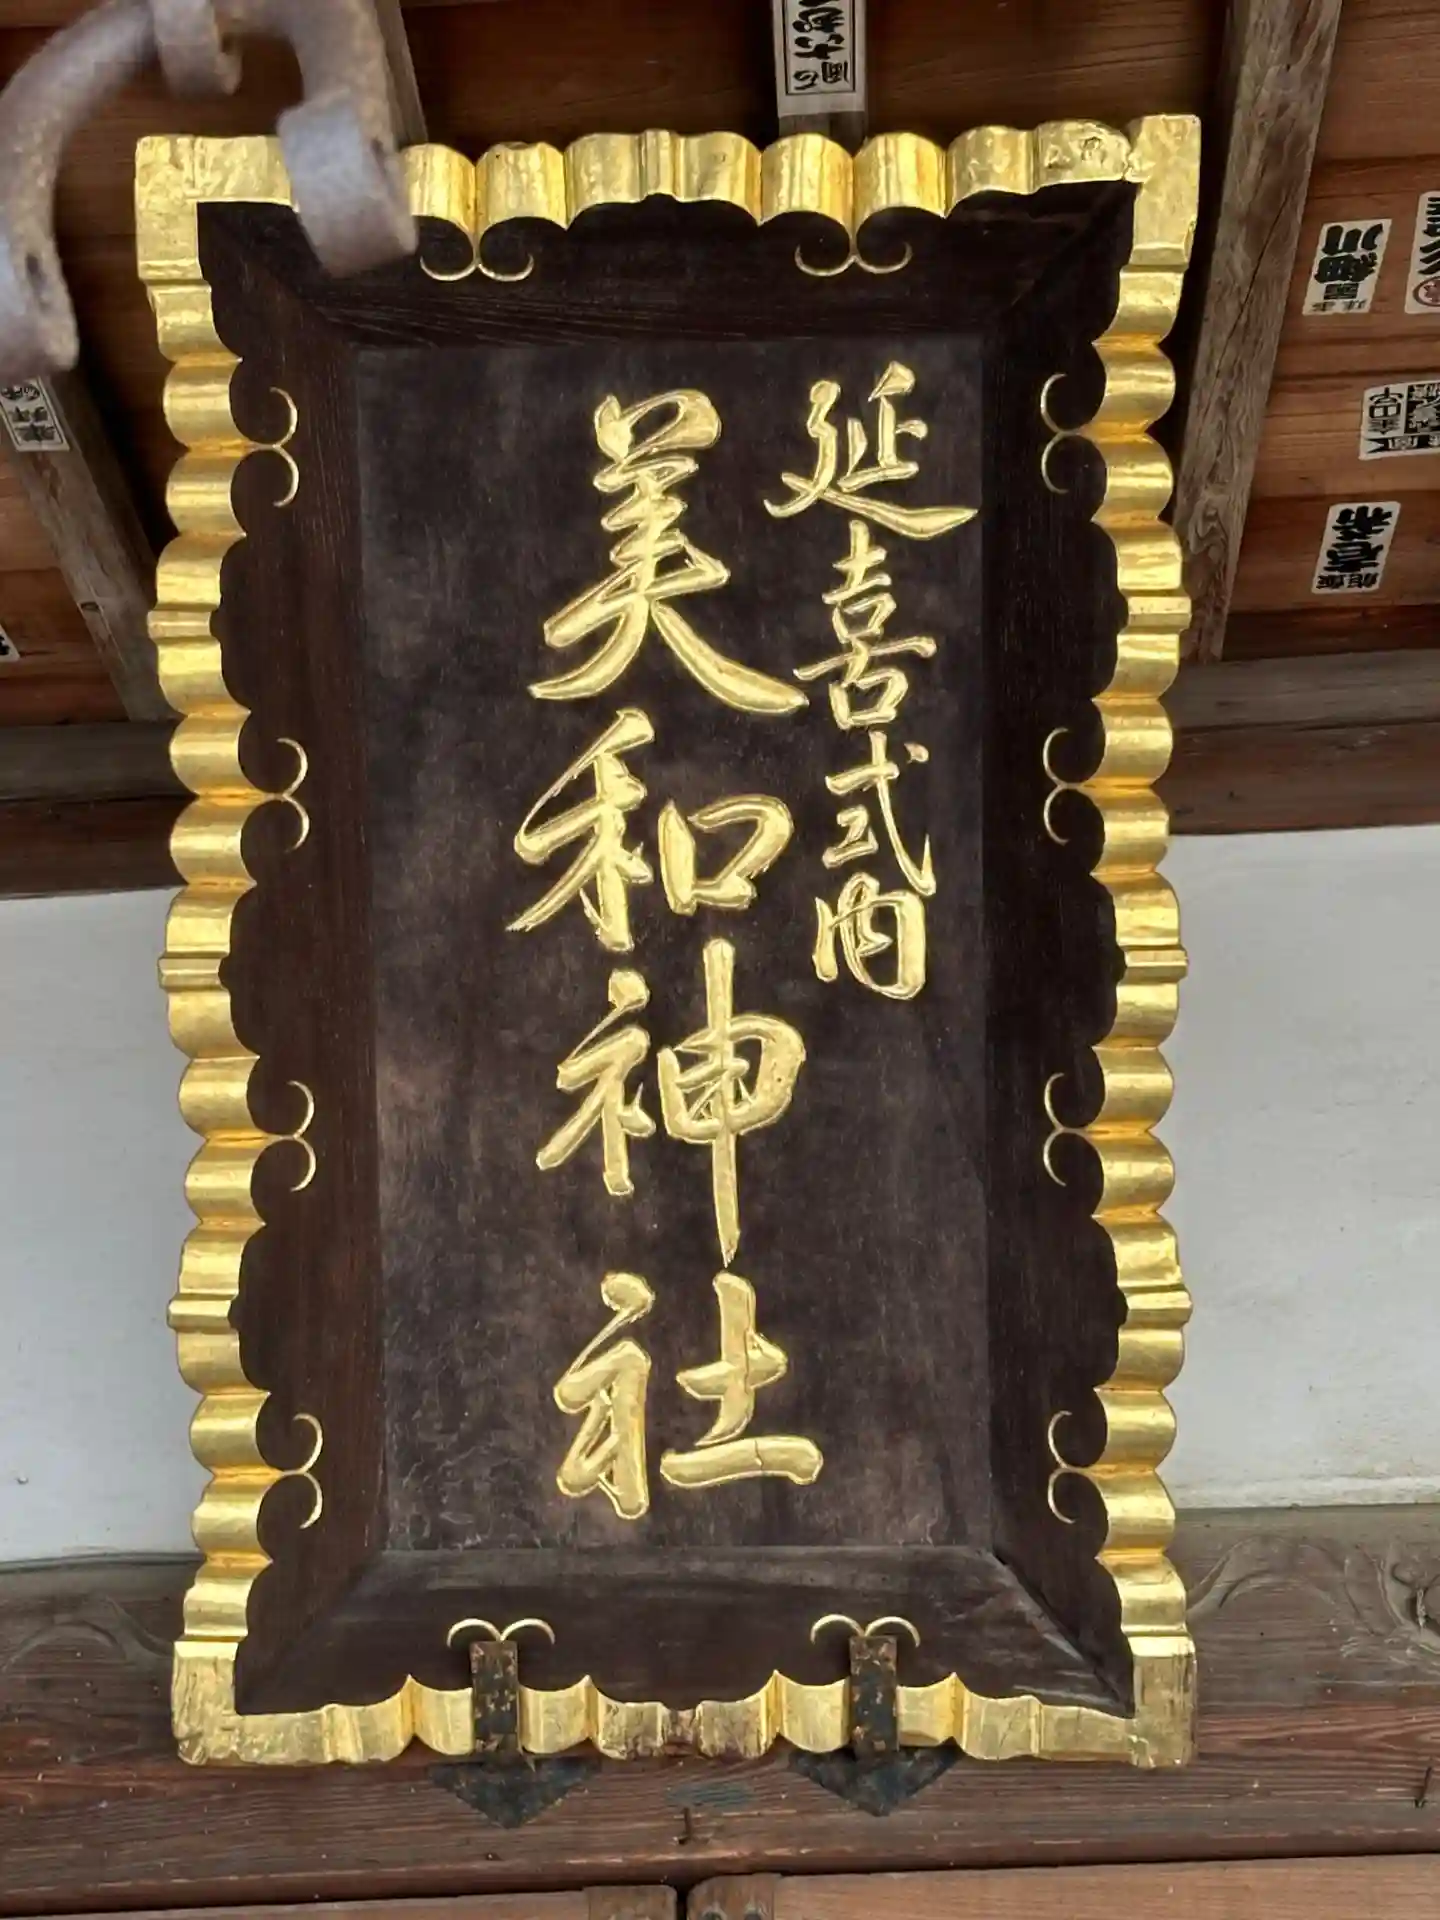 延喜式内
美和神社
細川